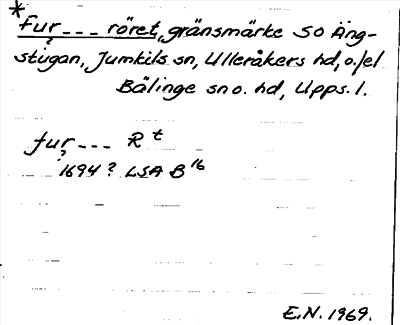 *
fur--- röret, gränsmärke SO Äng-
?
stugan, Jumkils sn, Ulleråkers hd, o./el
Bälinge sn o. hd, Upps. l.
fur--- R t
?
1694? LSA B 16
E.N. 1969.